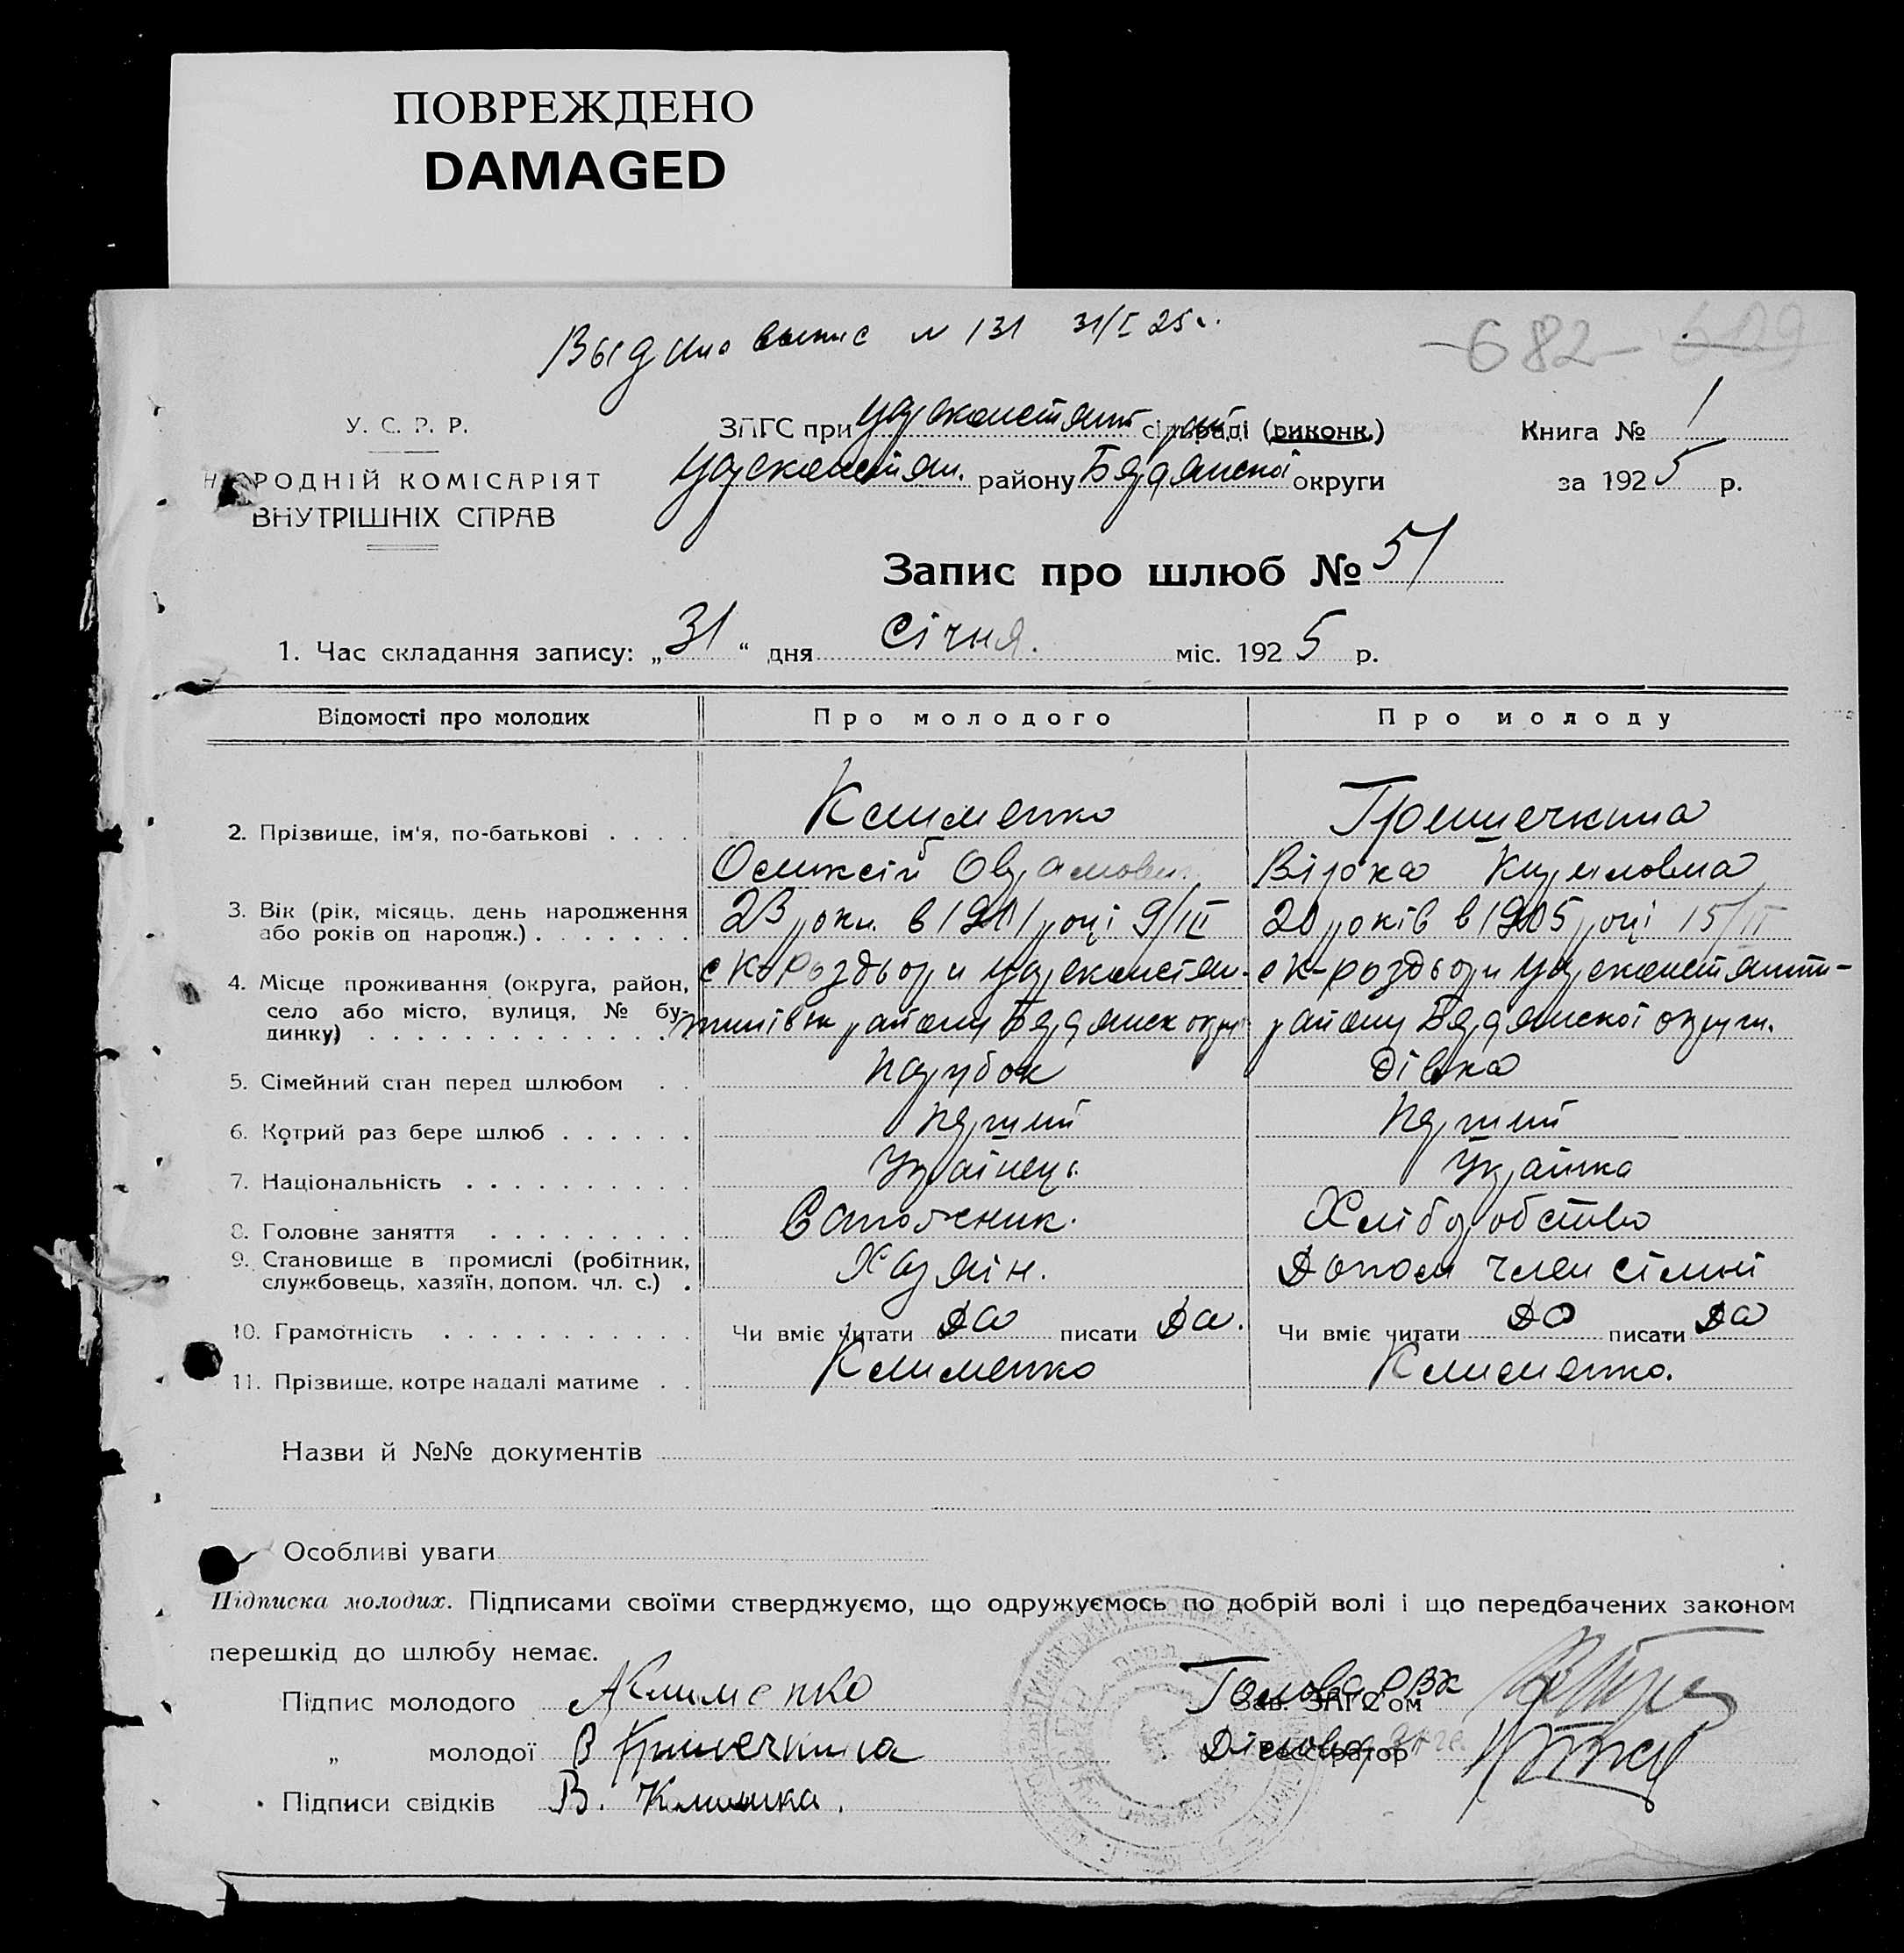 ПОВРЕЖДЕНО
DAMAGED
Выдано выпис N 131 31/I 25 г.
-682- 609
У. С. Р. Р.
НАРОДНІЙ КОМІСАРІЯТ
ВНУТРІШНІХ СПРАВ
ЗАГС при Цареконстянт рай сільраді (виконк.)
Цареконстян. району Бердянської округи
Книга № 1
за 1925 р.
Запис про шлюб № 51
1. Час складання запису: „31“ дня Січня. міс. 1925 р.
Відомості про молодих Про молодого Про молоду
2. Прізвище, ім'я, по-батькові . . . . Клименко Грешечкина
Олексій Овра Віра Кириловна
3. Вік (рік, місяць, день народження або років од народж.) . . . . . . . 23 роки. в 1901 році 9/III 20 років в 1905 році 15/II
4. Місце проживання (округа, район, село або місто, вулиця, № будинку) . . . . . . . . . . . . . .
с К-роздьори Цареконстян- с К-роздьори Цареконстянти-
тинівськ району Бердянськ окр району Бердянської округи.
5. Сімейний стан перед шлюбом . . Парубок Дівка
6. Котрий раз бере шлюб . . . . . . Перший Перший
7. Національність . . . . . . . . . . Українець Українка
8. Головне заняття . . . . . . . . . Сапожник. Хліборобство
9. Становище в промислі (робітник, службовець, хазяїн, допом. чл. с.) . Хазяїн. Допом член сімї
10. Грамотність . . . . . . . . . . . Чи вміє читати Да писати Да. Чи вміє читати Да писати Да
11. Прізвище, котре надалі матиме . . Клименко Клименко.
Назви й №№ документів
Особливі уваги
Підписка молодих. Підписами своїми стверджуємо, що одружуємось по добрій волі і що передбачених законом
перешкід до шлюбу немає.
Підпис молодого АКлименко Голова РВК Зав. ЗАГС'ом
„ молодої В Грешечкина Діловод Реєстратор
Підписи свідків В.